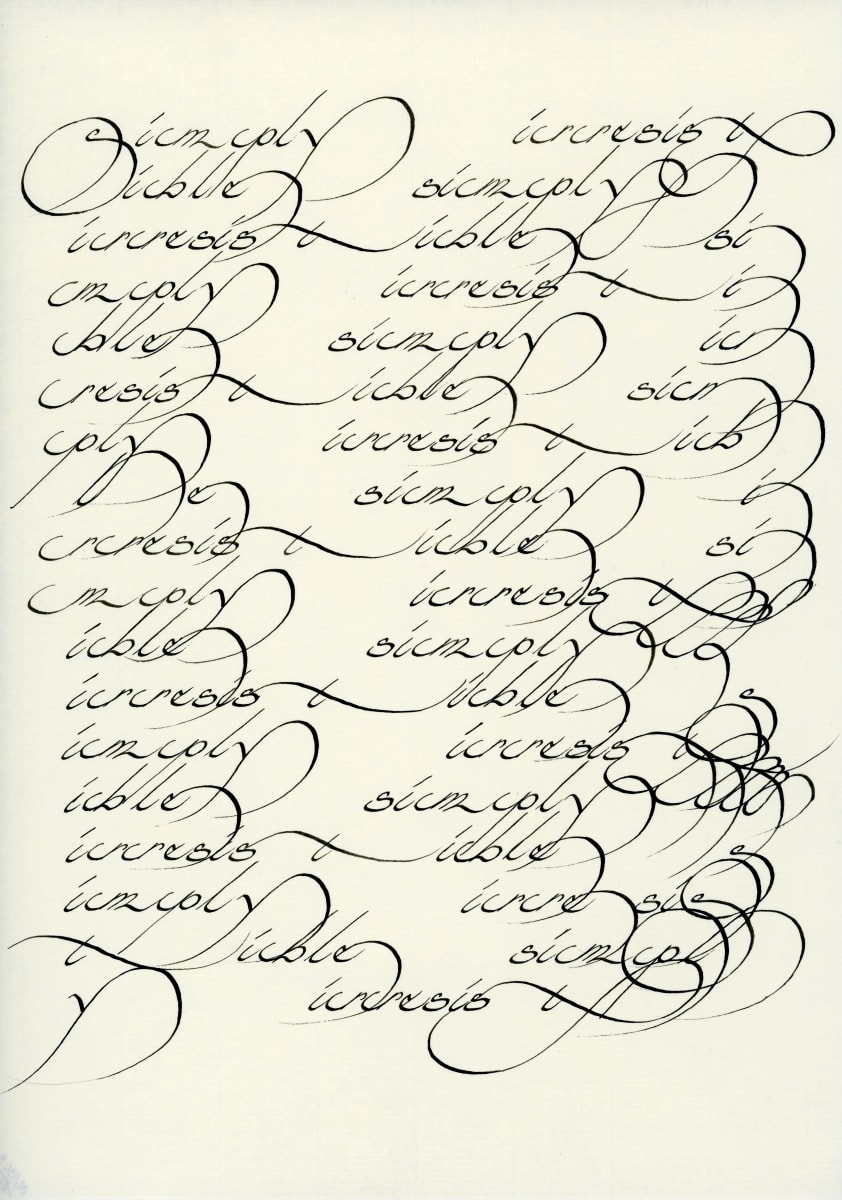 simply irresist
ible simply
irresistible si
mply irresisti
ble simply ir
resistible sim
ply irresistib
le simply i
rresistible si
mply irresist
ible simply
irresistible s
imply irresist
ible simply
irresistible s
imply irresis
tible simpl
y irresist